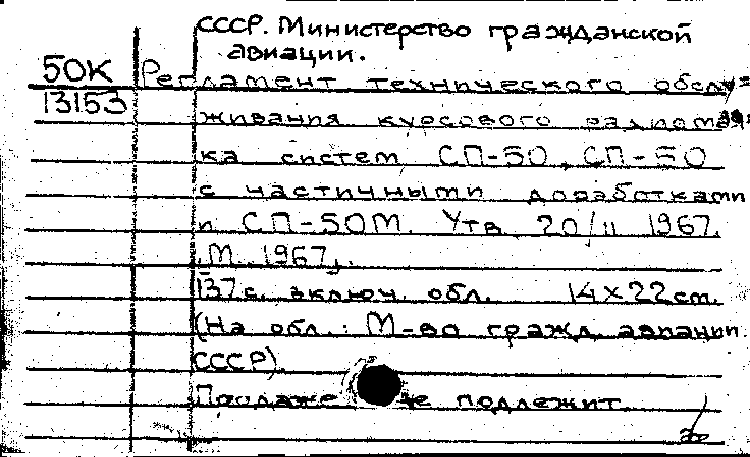 СССР. Министерство гражданской
авиации.
50К
Регламент технического обслу-
13153
живания курсового радиомая-
ка систем СП-50, СП-50
с частичными доработками
и СП-50М. Утв. 20/II 1967.
М. 1967.
137 с. включ. обл. 14х22 см.
(На обл.: М-во гражд. авиации
СССР).
Продаже не подлежит